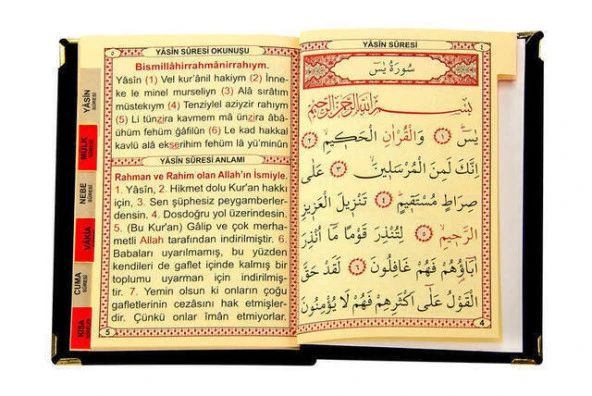 YÂSİN SÛRESİ OKUNUŞU
Bismillâhirrahmânirrahıym.
Yâsîn (1) Vel kur'ânil hakiym (2) İnne-
ke le minel murseliyn (3) Alâ sırâtim
müstekıym (4) Tenziylel aziyzir rahıym
(5) Li tünzira kavmem mâ ünzira âbâ-
ühüm fehüm gâfilûn (6) Le kad hakkal
kavlü alâ ekserihim fehüm lâ yü'minûn
YÂSİN SÛRESİ ANLAMI
Rahman ve Rahim olan Allah'ın İsmiyle.
1. Yâsîn, 2. Hikmet dolu Kur'an hakkı
için, 3. Sen şüphesiz peygamberler-
densin. 4. Dosdoğru yol üzerindesin.
5. (Bu Kur'an) Gâlip ve çok merha-
metli Allah tarafından indirilmiştir. 6.
Babaları uyarılmamış, bu yüzden
kendileri de gaflet içinde kalmış bir
toplumu uyarman için indirilmiş-
tir. 7. Yemin olsun ki onların çoğu
gafletlerinin cezasını hak etmişler-
dir. Çünkü onlar iman etmiyorlar.
5
YÂSİN SÛRESİ
MÜLK
NEBE SÛRESİ
VÂKIA
CUMA SÛRESİ
KISA
YÂSİN SÛRESİ
سُورَةُ يٰسٓ
بِسْمِ اللّٰهِ الرَّحْمٰنِ الرَّحِيمِ
يٰسٓ ١ وَالْقُرْاٰنِ الْحَكِيمِ ٢
اِنَّكَ لَمِنَ الْمُرْسَلِينَ ٣ عَلٰى
صِرَاطٍ مُسْتَقِيمٍ ٤ تَنْزِيلَ الْعَزِيزِ
الرَّحِيمِ ٥ لِتُنْذِرَ قَوْمًا مَٓا اُنْذِرَ
اٰبَٓاؤُهُمْ فَهُمْ غَافِلُونَ ٦ لَقَدْ حَقَّ
الْقَوْلُ عَلٰٓى اَكْثَرِهِمْ فَهُمْ لَا يُؤْمِنُونَ
4